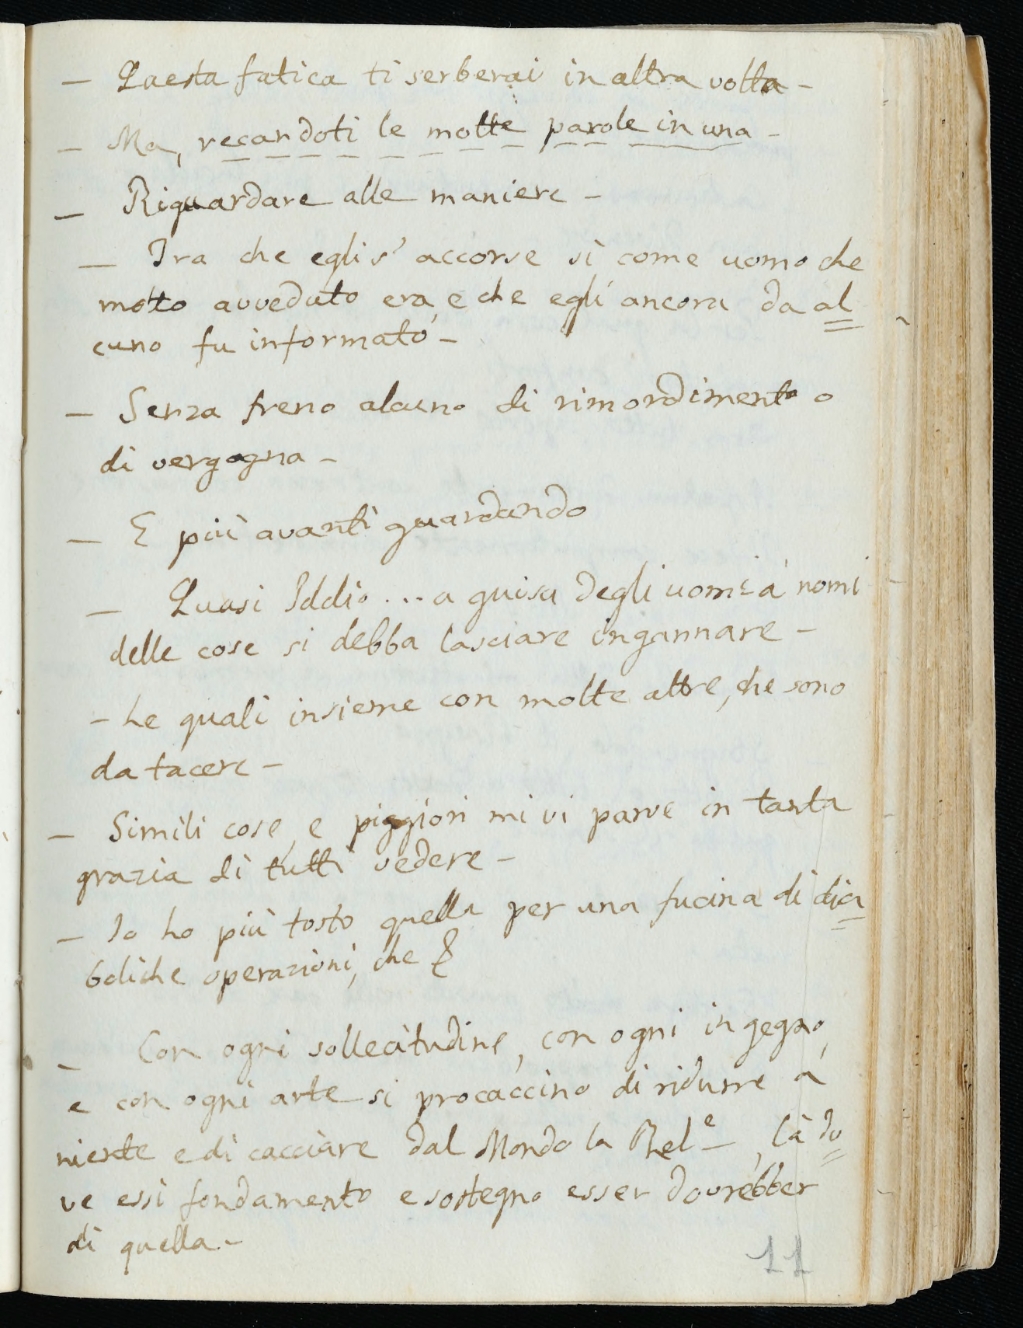 – Questa fatica ti serberai in altra volta –
– Ma, recandoti le molte parole in una –
– Riguardare alle maniere –
– Tra che egli s' accorse sì come uomo che
molto avveduto era, e che egli ancora da al
cuno fu informato –
– Senza freno alcuno di rimordimento o
di vergogna –
– E più avanti guardando
– Quasi Iddio ... a guisa degli uomi a' nomi
delle cose si debba lasciare ingannare –
– Le quali insieme con molte altre, che sono
da tacere –
– Simili cose, e piggiori mi vi parve in tanta
grazia di tutti vedere –
– Io ho più tosto quella per una fucina di dia
boliche operazioni, che &
– Con ogni sollecitudine, con ogni ingegno,
e con ogni arte si procaccino di ridurre a
niente e di cacciare dal Mondo la Rel.e –, là do
ve essi fondamento e sostegno esser dovrebber
di quella. –
11